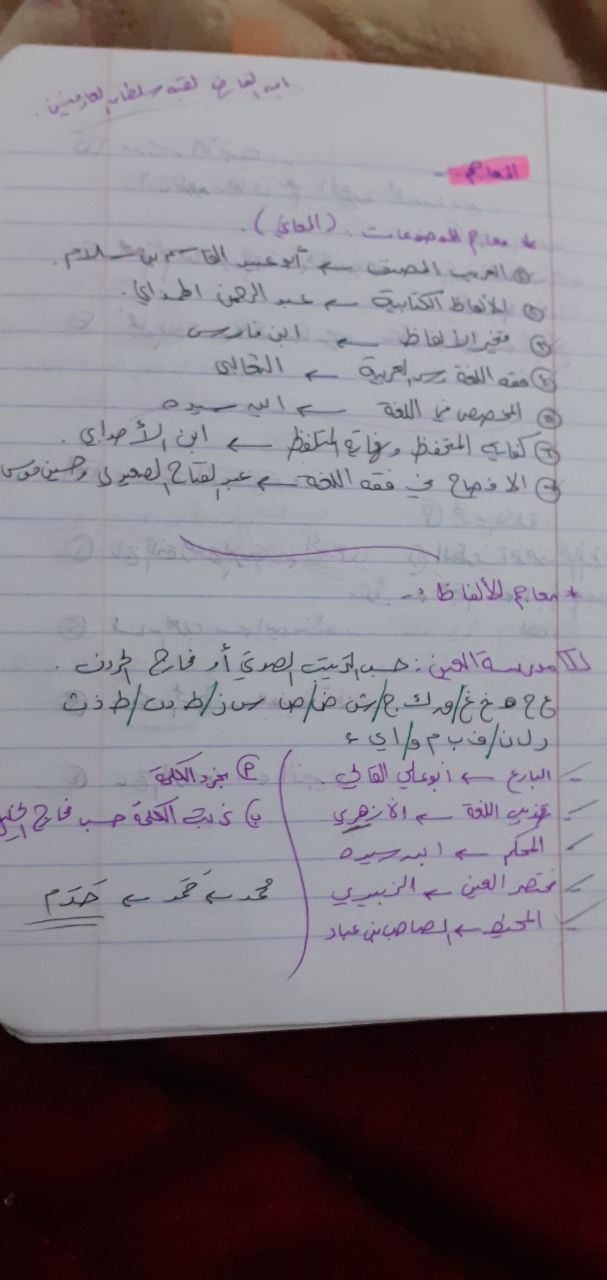 ابن الفارض لقبه سلطان العارفين.
المعاجم :-
* معاجم الموضوعات. (المعاني).
① الغريب المصنف ← أبو عبيد القاسم بن سلام.
② الألفاظ الكتابية ← عبد الرحمن الهمذاني.
③ متخير الألفاظ ← ابن فارس
④ فقه اللغة وسر العربية ← الثعالبي
⑤ المخصص في اللغة ← ابن سيده
⑥ كفاية المتحفظ ونهاية المتلفظ ← ابن الأجدابي.
⑦ الافصاح في فقه اللغة ← عبد الفتاح الصعيدي وحسين موسى
* معاجم الألفاظ :-
1 مدرسة العين : حسب الترتيب الصوتي أو مخارج الحروف.
ع ح ه خ غ/ ق ك/ ج ش ض/ ص س ز/ ط د ت/ ظ ذ ث
ر ل ن/ ف ب م و/ ا ي ء
- البارع ← أبو علي القالي
- تهذيب اللغة ← الأزهري
- المحكم ← ابن سيده
- مختصر العين ← الزبيدي
- المحيط ← الصاحب بن عباد
أ) تجرد الكلمة
ب) ترتيب الكلمة حسب مخارج
محمد ← حَمَد ← حَدَم